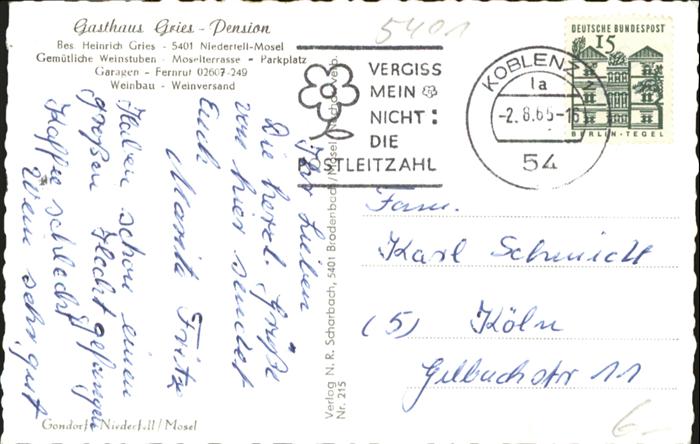 Gasthaus Gries - Pension
Bes. Heinrich Gries - 5401 Niederfell-Mosel
Gemütliche Weinstuben - Moselterrasse - Parkplatz
Garagen - Fernruf 02607-249
Weinbau - Weinversand
5401
VERGISS
MEIN
NICHT:
DIE
POSTLEITZAHL
KOBLENZ
1a
-2.8.65-16
54
DEUTSCHE BUNDESPOST
15
BERLIN-TEGEL
Ihr Lieben
Die herzl. Grüße
von hier sendet
Euch
Marita Fritz
Haben schon einen
großen Hecht gefangen
Kaffee schlecht
Wein sehr gut
Gondorf - Niederfell/Mosel
Verlag N. R. Scharbach, 5401 Brodenbach/Mosel
Nr. 215
Fam.
Karl Schmidt
(5) Köln
Gilbachstr 11
6-